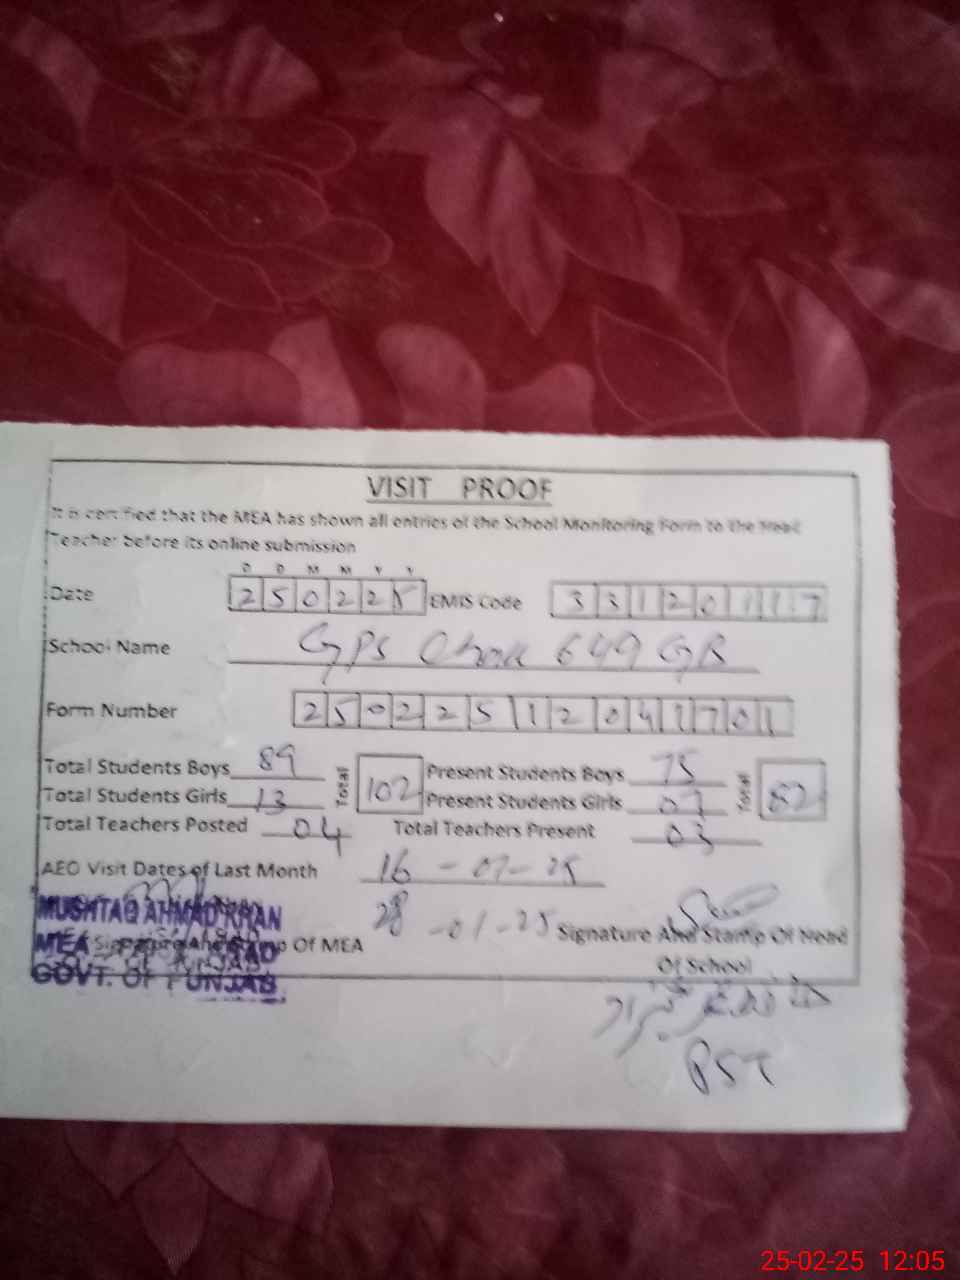 VISIT PROOF
It is certified that the MEA has shown all entries of the School Monitoring Form to the Head
Teacher before its online submission
D D M M Y Y
Date 250225 EMIS Code 33120117
School Name GPS Chak 649 GB
Form Number 25022512041701
Total Students Boys 89 Total 102 Present Students Boys 75 Total 82
Total Students Girls 13 Present Students Girls 07
Total Teachers Posted 04 Total Teachers Present 03
AEO Visit Dates of Last Month 16-01-25
28-01-25
MUSHTAQ AHMAD KHAN
MEA
GOVT. OF PUNJAB
Signature And Stamp Of MEA
Signature And Stamp Of Head
Of School
PST
25-02-25 12:05